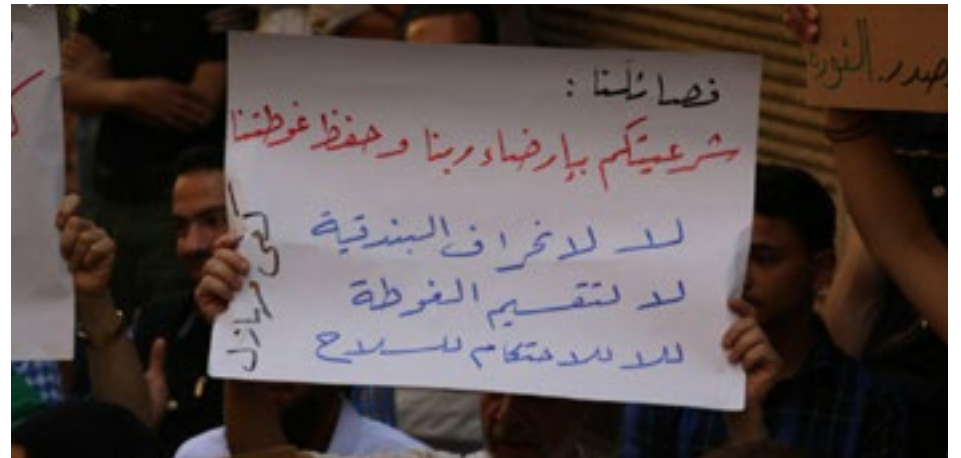 فصائلنا :
شرعيتكم بإرضاء ربنا وحفظ غوطتنا
لا لانحراف البندقية
لا لتقسيم الغوطة
لا للاحتكام للسلاح
كفى مهازل
الثورة